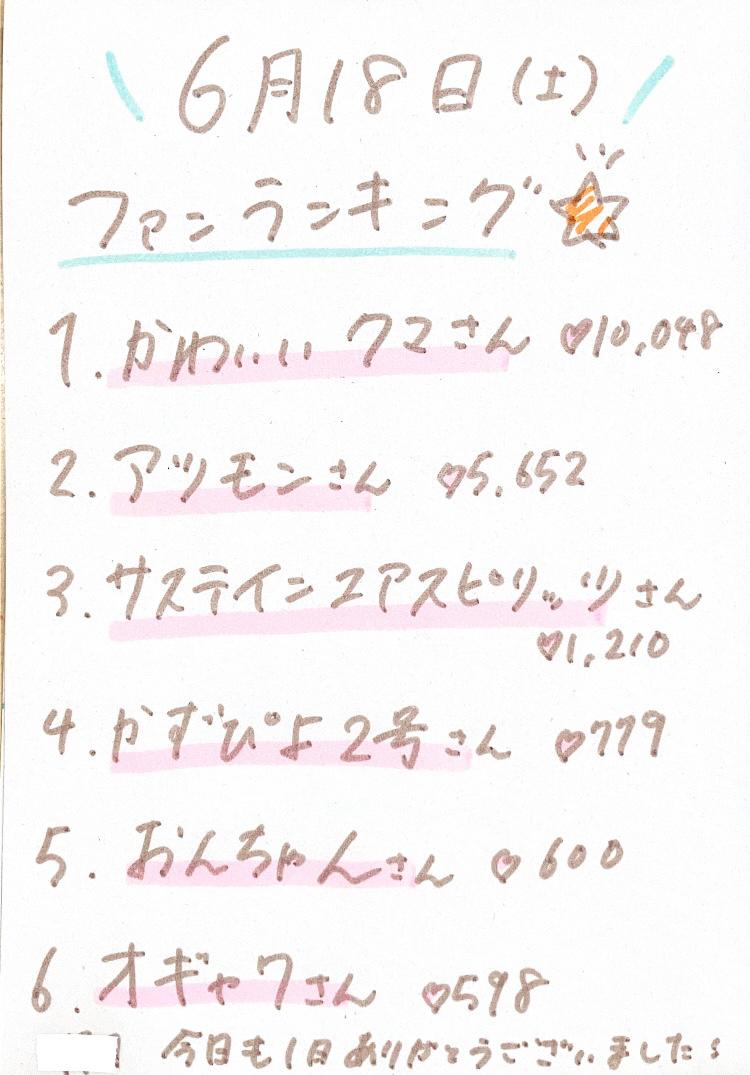 6月18日(土)
ファンランキング
1. かわいいクマさん ♡10,048
2. アツモンさん ♡5,652
3. サステインユアスピリッツさん
♡1,210
4. かずぴよ2号さん ♡779
5. おんちゃんさん ♡600
6. オギャワさん ♡598
今日も1日ありがとうございました!